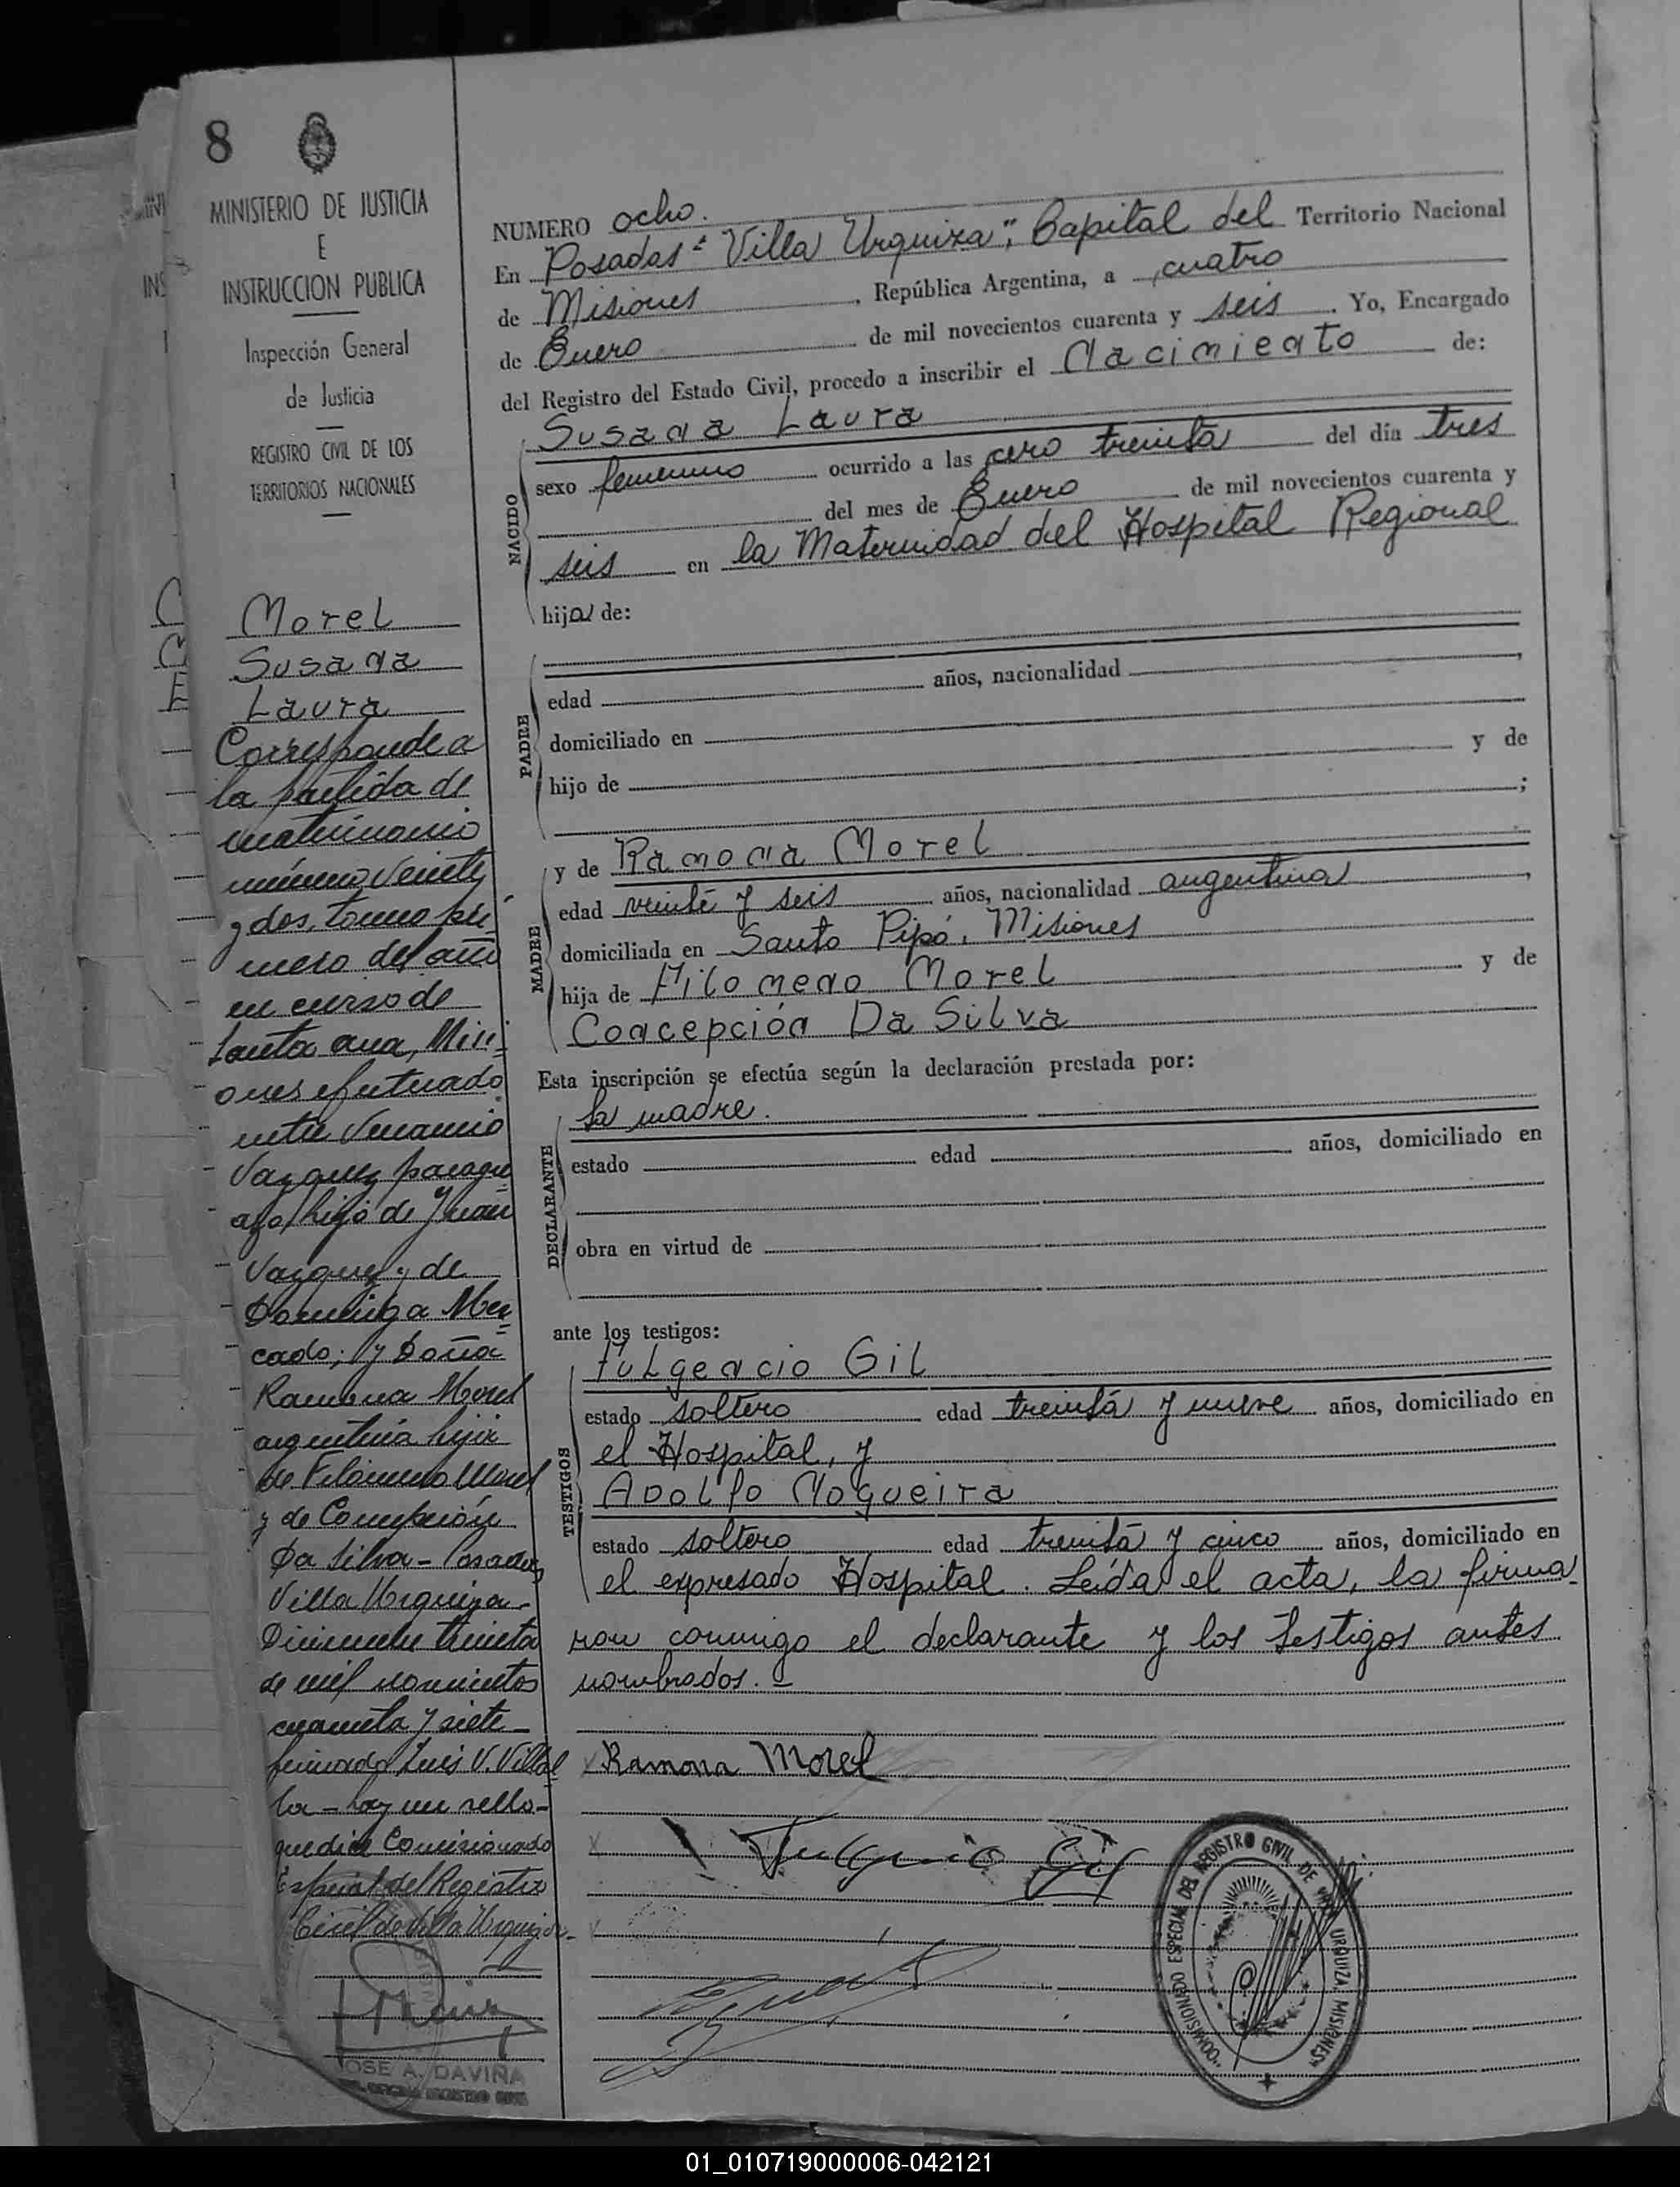 8
MINISTERIO DE JUSTICIA
E
INSTRUCCION PUBLICA
Inspección General
de Justicia
REGISTRO CIVIL DE LOS
TERRITORIOS NACIONALES
Morel
Susana
Laura
Corresponde a
la partida de
matrimonio
número veinte
y dos, tomo pri-
mero del año
en curso de
Santa ana, Misi-
ones efectuado
entre Venancio
Vazquez paragu
ayo hijo de Juan
Vazquez y de
Dominga Mer-
cado; y Doña
Ramona Morel
argentina hija
de Filomeno Morel
y de Concepción
Da Silva - Posadas
Villa Urquiza -
Diciembre treinta
de mil novecientos
cuarenta y siete -
firmado Luis V. Villal
ba - hay un sello -
que dice Comisionado
Especial del Registro
Civil de Villa Urquiza -
JOSE A. DAVIÑA
NUMERO ocho.
En Posadas "Villa Urquiza", Capital del Territorio Nacional
de Misiones, República Argentina, a cuatro
de Enero de mil novecientos cuarenta y seis. Yo, Encargado
del Registro del Estado Civil, procedo a inscribir el Nacimiento de:
NACIDO
Susana Laura
sexo femenino ocurrido a las cero treinta del día tres
del mes de Enero de mil novecientos cuarenta y
seis en la Maternidad del Hospital Regional
hija de:
PADRE
edad años, nacionalidad ,
domiciliado en
hijo de y de
;
MADRE
y de Ramona Morel
edad veinte y seis años, nacionalidad argentina,
domiciliada en Santo Pipó, Misiones
hija de Filomeno Morel y de
Concepción Da Silva
Esta inscripción se efectúa según la declaración prestada por:
DECLARANTE
la madre.
estado edad años, domiciliado en
obra en virtud de
ante los testigos:
TESTIGOS
Fulgencio Gil
estado soltero edad treinta y nueve años, domiciliado en
el Hospital, y
Adolfo Nogueira
estado soltero edad treinta y cinco años, domiciliado en
el expresado Hospital. Leída el acta, la firma-
ron conmigo el declarante y los testigos antes
nombrados. -
x Ramona Morel
x Fulgencio Gil
x
"COMISIONADO ESPECIAL DEL REGISTRO CIVIL DE VILLA URQUIZA, MISIONES"
01_010719000006-042121